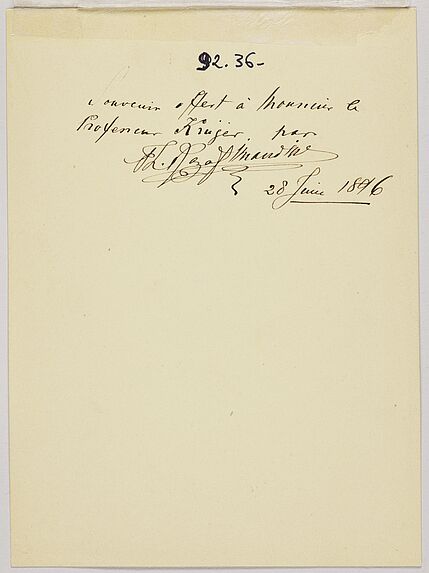 92.36-
Souvenir offert à Monsieur le
Professeur Krüger. par
28 Juin 1896